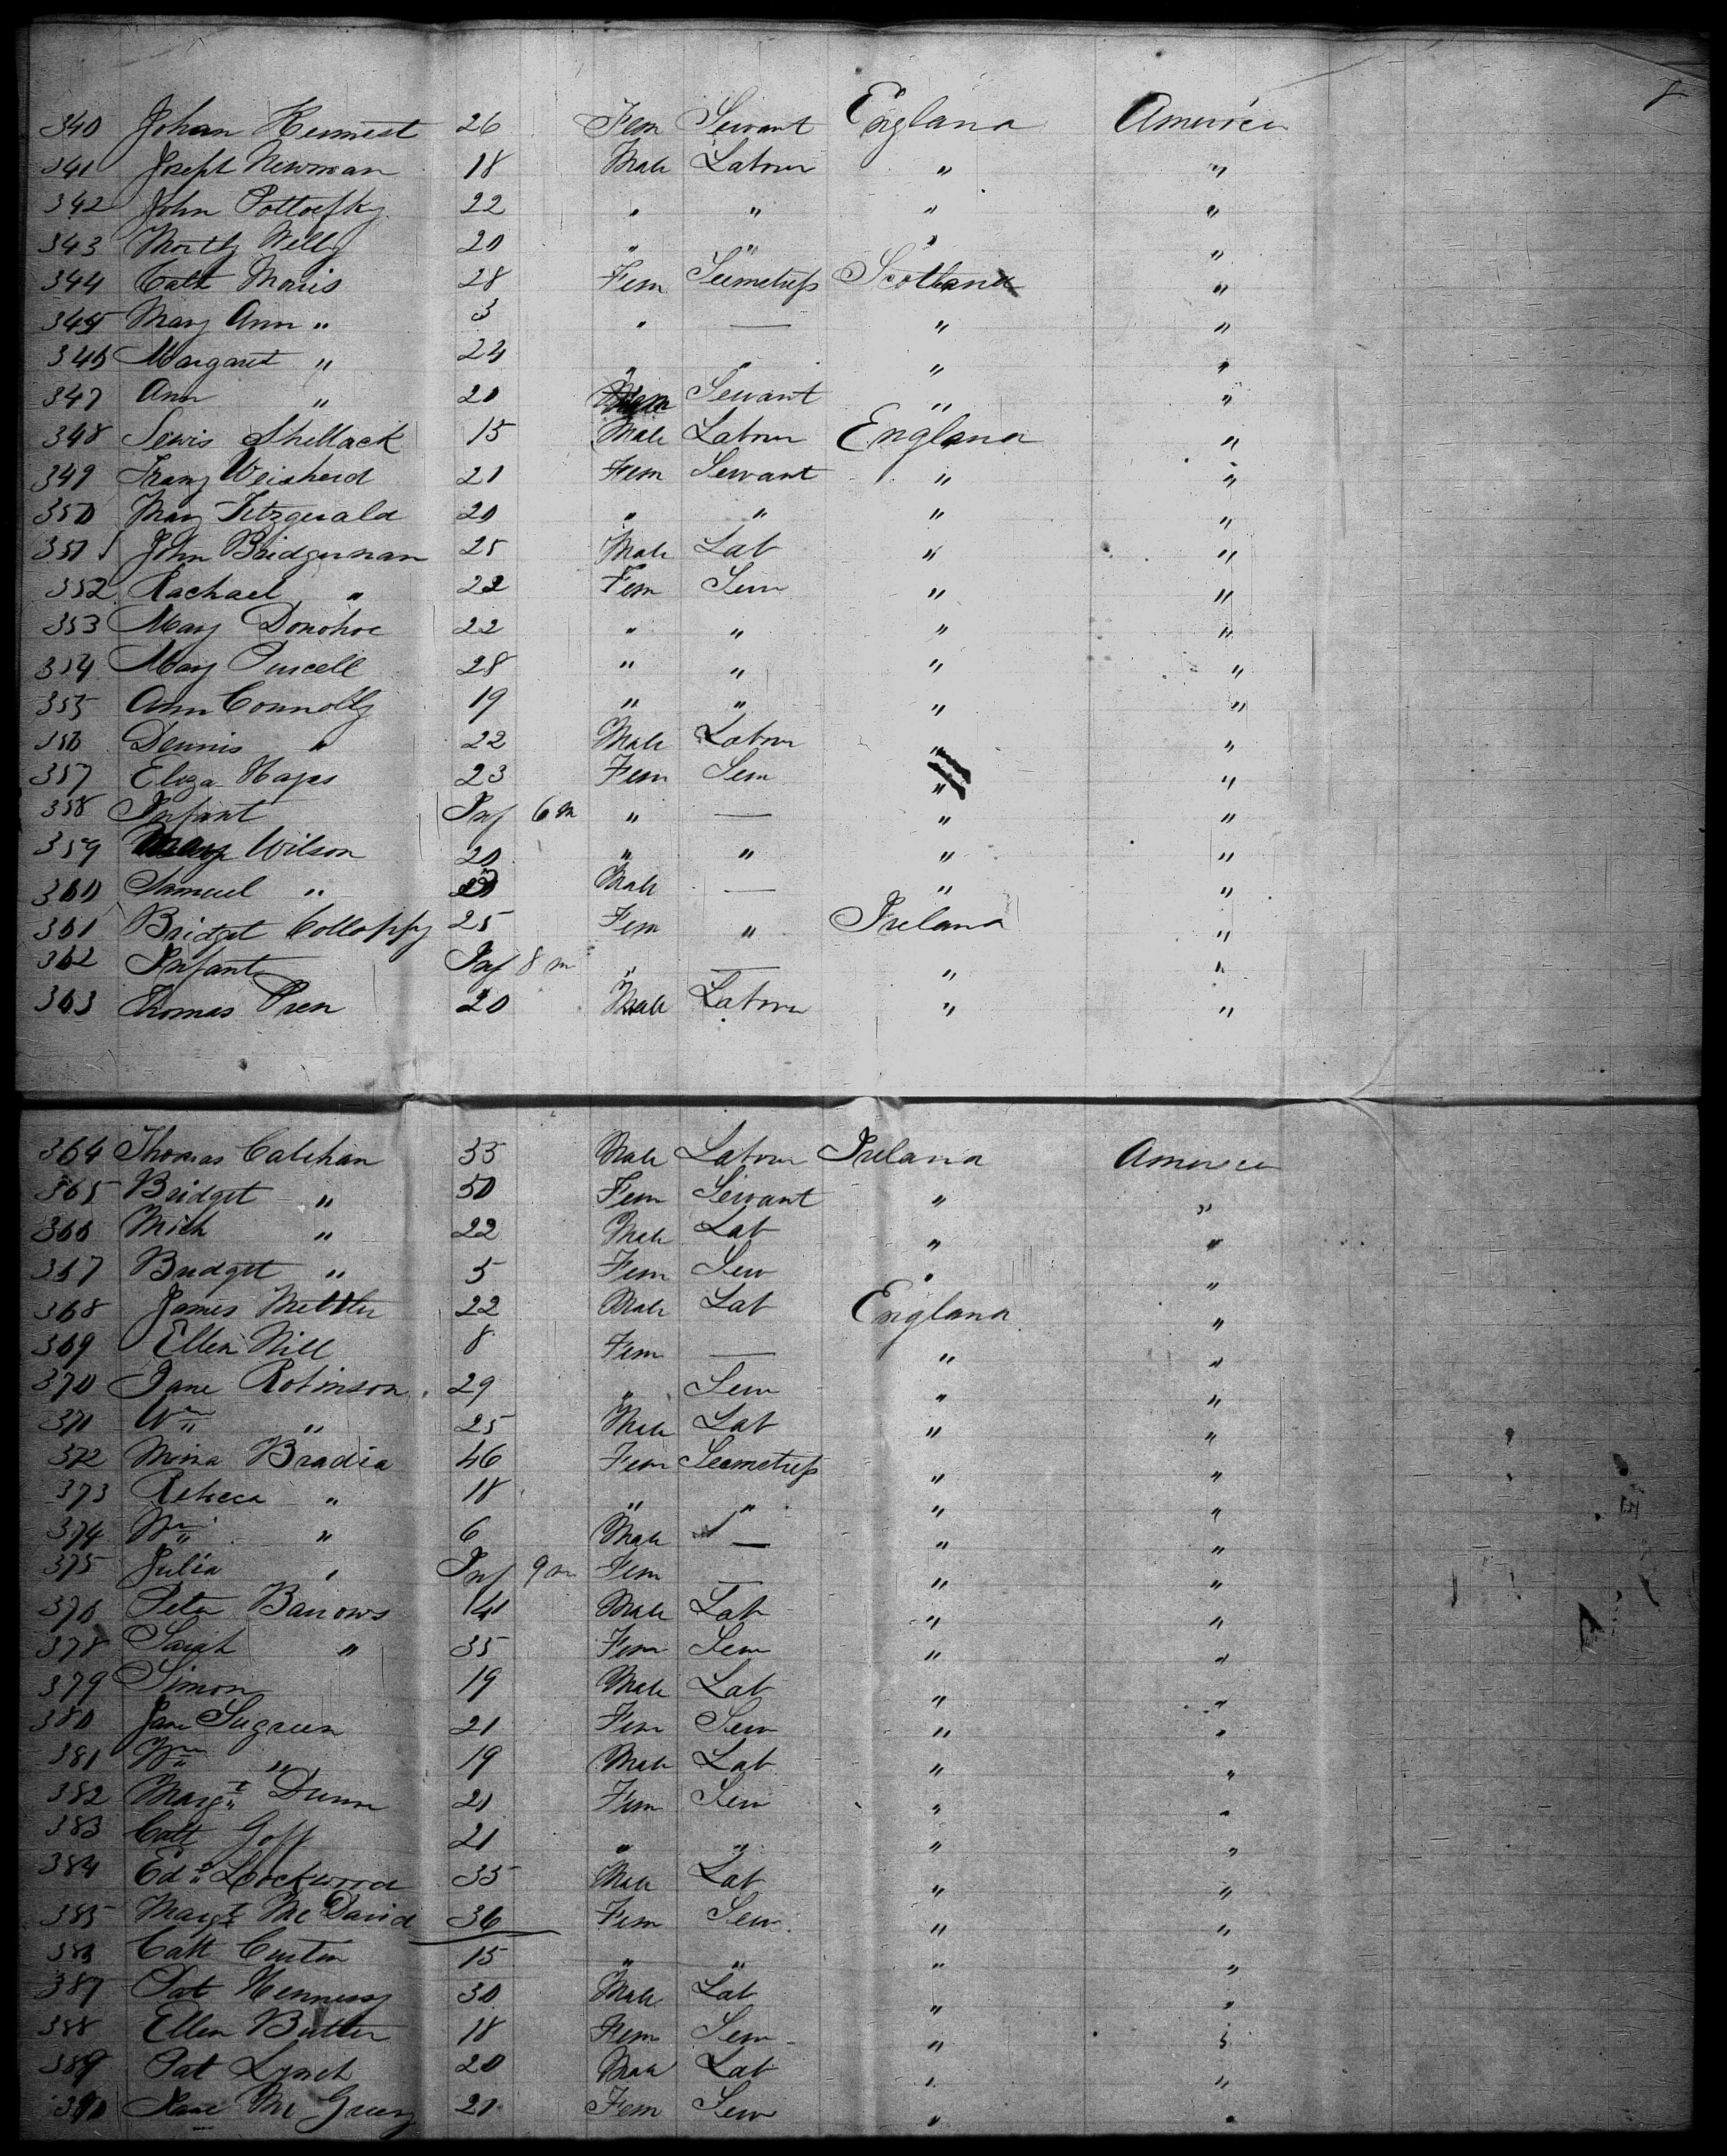 340 Johan Kennest 26 Fem Servant England America
341 Joseph Newman 18 Male Labour " "
342 John Pottoefsky 22 " " " "
343 Welly 20 " " " "
344 Cath Morris 28 Fem Seemstress Scotland "
345 Mary Ann " 3 " — " "
346 Margaret " 24 " " " "
347 Ann " 20 Servant " "
348 Lewis Shellack 15 Male Labour England "
349 Franz Weisherd 21 Fem Servant " "
350 Mary Fitzgerald 20 " " " "
351 John Bridgeman 25 Male Lab " "
352 Rachael " 22 Fem Serv " "
353 Mary Donohoe 22 " " " "
354 Mary Purcell 28 " " " "
355 Ann Connolly 19 " " " "
356 Dennis " 22 Male Labour " "
357 Eliza Hayes 23 Fem Serv " "
358 Infant Inf 6 m " — " "
359 Mary Wilson 20 " " " "
360 Samuel " Male — " "
361 Bridget Colloppy 25 Fem " Ireland "
362 Infant Inf 8 m " — " "
363 Thomas Pren 20 Male Labour " "
364 Thomas Calehan 55 Male Labour Ireland America
365 Bridget " 50 Fem Servant " "
366 Mich " 22 Male Lab " "
367 Bridget " 5 Fem Serv " "
368 James Mettler 22 Male Lab England "
369 Ellen Nill 8 Fem — " "
370 Jane Robinson 29 " Serv " "
371 Wm " 25 Male Lab " "
372 Mina Bradia 46 Fem Seemstress " "
373 Rebeca " 18 " " " "
374 Wm " 6 Male — " "
375 Julia " Inf 9 m Fem — " "
376 Peter Barrows 14 Male Lab " "
378 Sarah " 35 Fem Serv " "
379 Simon 19 Male Lab " "
380 Jane Sugreen 21 Fem Serv " "
381 Wm " 19 Male Lab " "
382 Margt Dunn 21 Fem Serv " "
383 Catt Goff 21 " " " "
384 Edd Lockwood 35 Male Lab " "
385 Margt McDavid 36 Fem Serv " "
386 Catt Curtin 15 " " " "
387 Pat Hennessy 30 Male Lab " "
388 Ellen Butler 18 Fem Serv " "
389 Pat Lynch 20 Male Lab " "
390 Jane Mc 21 Fem Serv " "